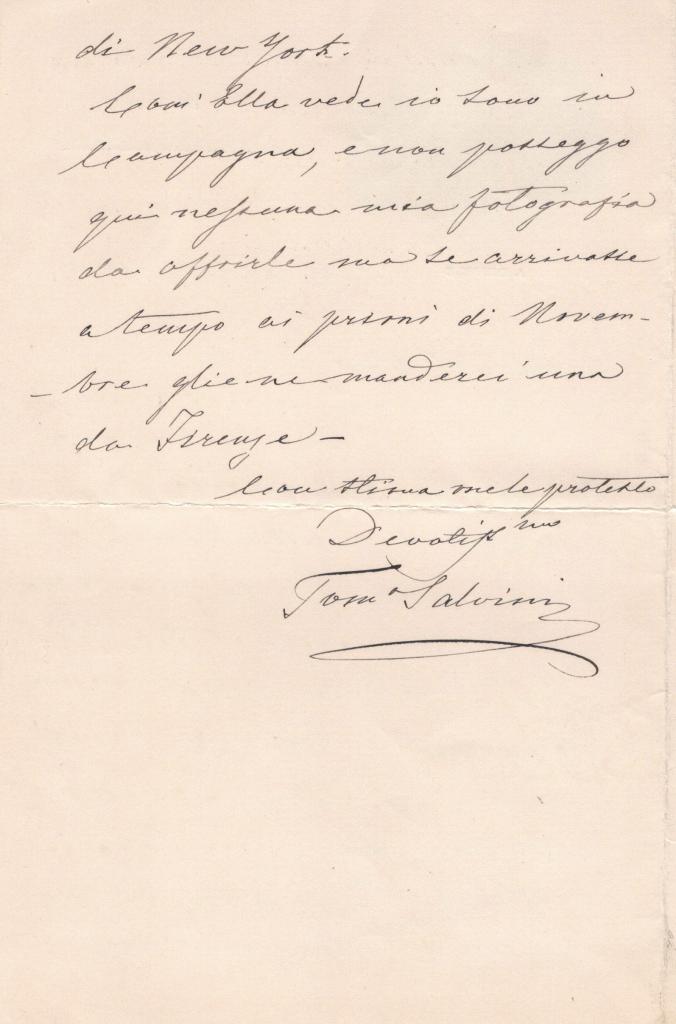 di New York.
Com' Ella vede io sono in
Campagna, e non posseggo
qui nessuna mia fotografia
da offrirle ma se arrivasse
a tempo ai primi di Novem-
-bre gliene manderei una
da Firenze -
Con stima me le protesto
Devotissmo
Tomo Salvini